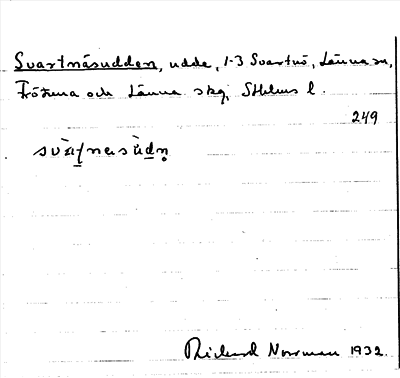 Svartnäsudden, udde, 1-3 Svartnö, Länna sn,
Frötuna och Länna skg, Sthlms l.
249
svàṭnesùdṇ
Rickard Norrman 1932.